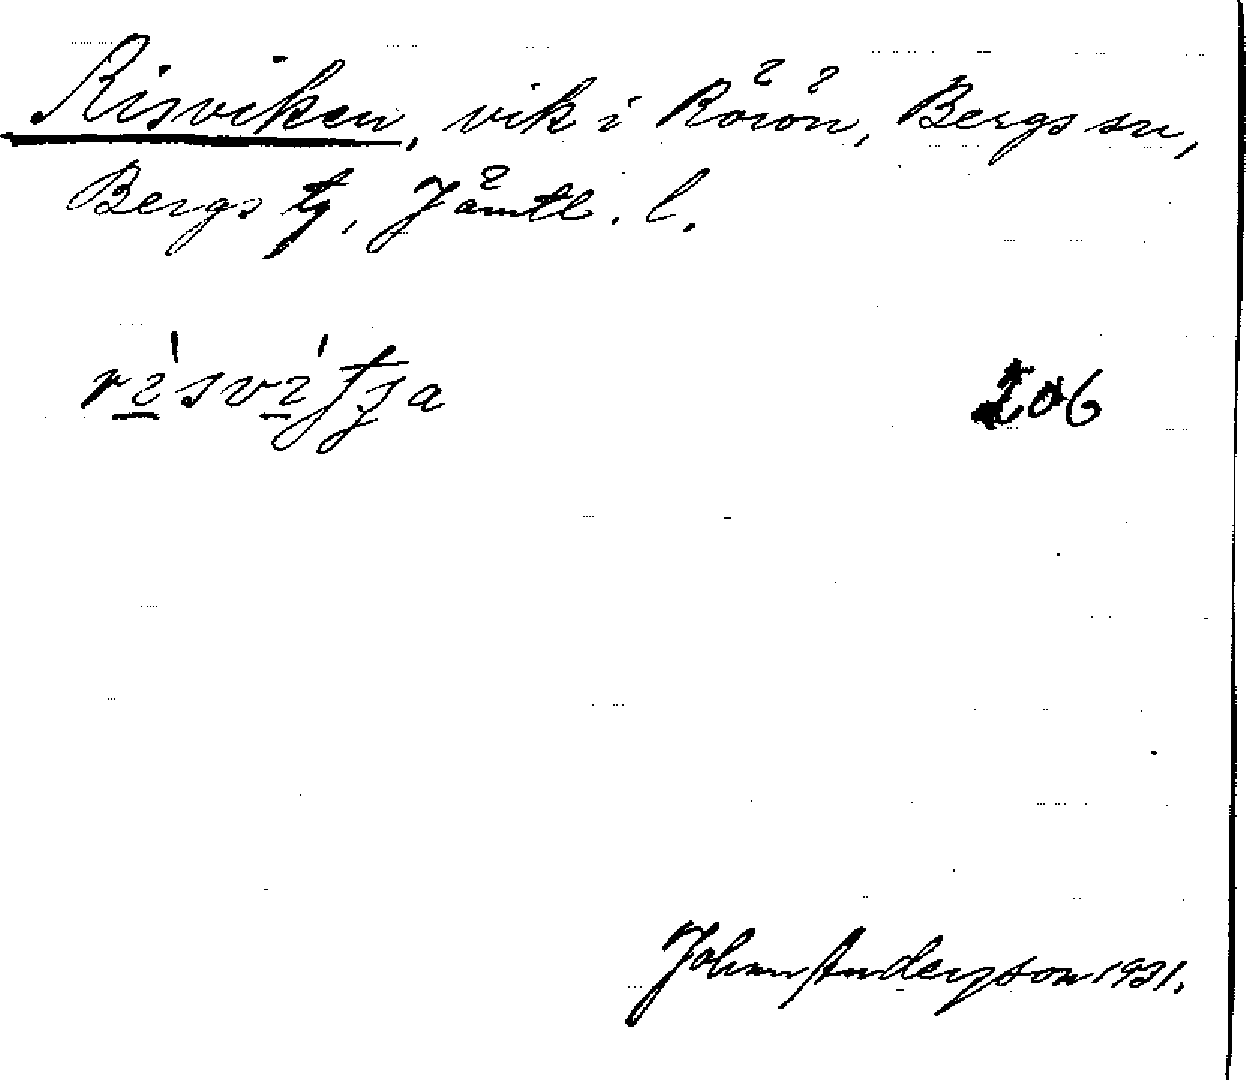 Risviken, vik i Rörön, Bergs sn,
Bergs tg, Jämtl. l.
206
Johan Anderson 1931.